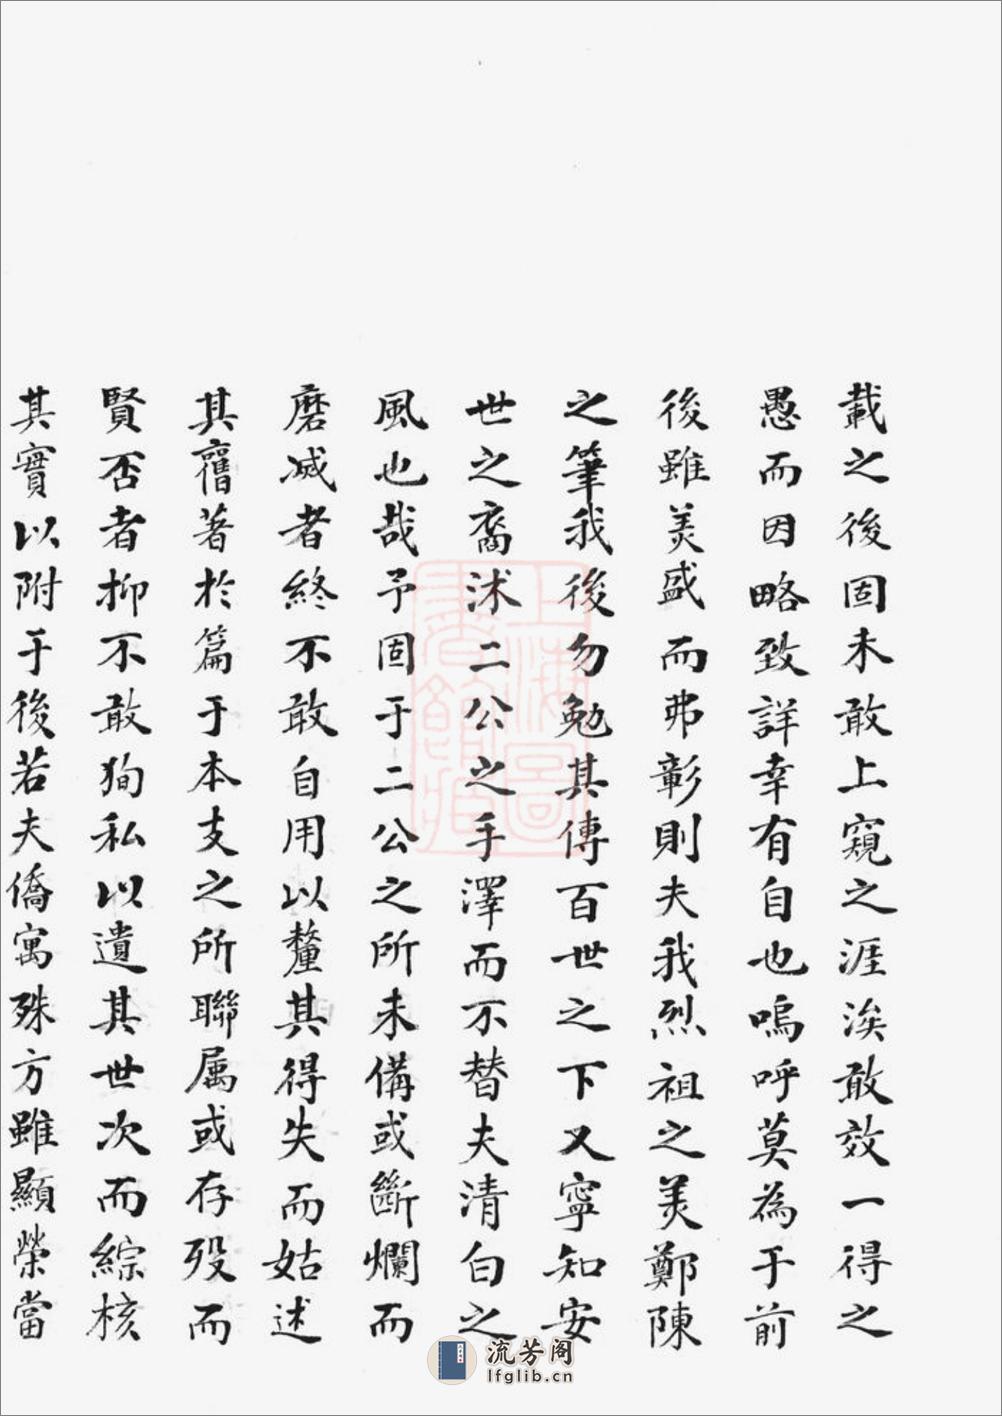 載之後固未敢上窺之涯涘敢效一得之
愚而因略致詳幸有自也嗚呼莫為于前
後雖美盛而弗彰則夫我烈祖之美鄭陳
之筆我後勿勉其傳百世之下又寧知安
世之裔沭二公之手澤而不替夫清白之
風也哉予固于二公之所未備或斷爛而
磨滅者終不敢自用以釐其得失而姑述
其舊著於篇于本支之所聯属或存歿而
賢否者抑不敢狥私以遺其世次而綜核
其實以附于後若夫僑寓殊方雖顯榮當
上海圖書館藏
流芳阁
lfglib.cn